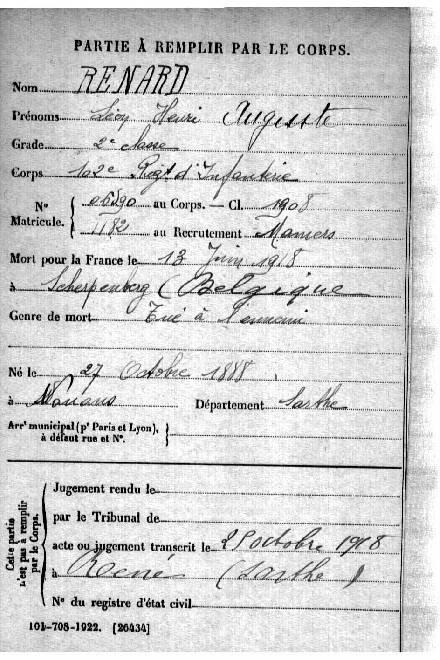 PARTIE À REMPLIR PAR LE CORPS.
Nom RENARD
Prénoms Léon Henri Auguste
Grade 2e classe
Corps 102e Régt d'Infanterie
Nº Matricule. { 06590 au Corps. — Cl. 1908
1182 au Recrutement Mamers
Mort pour la France le 13 Juin 1918
à Scherpenberg (Belgique
Genre de mort Tué à l'ennemi
Né le 27 Octobre 1888
à Nouans Département Sarthe
Arrt municipal (pr Paris et Lyon), à défaut rue et Nº. }
Cette partie n'est pas à remplir par le Corps.
Jugement rendu le
par le Tribunal de
acte ou jugement transcrit le 25 octobre 1918
à René (Sarthe)
Nº du registre d'état civil
101-708-1922. [26434]